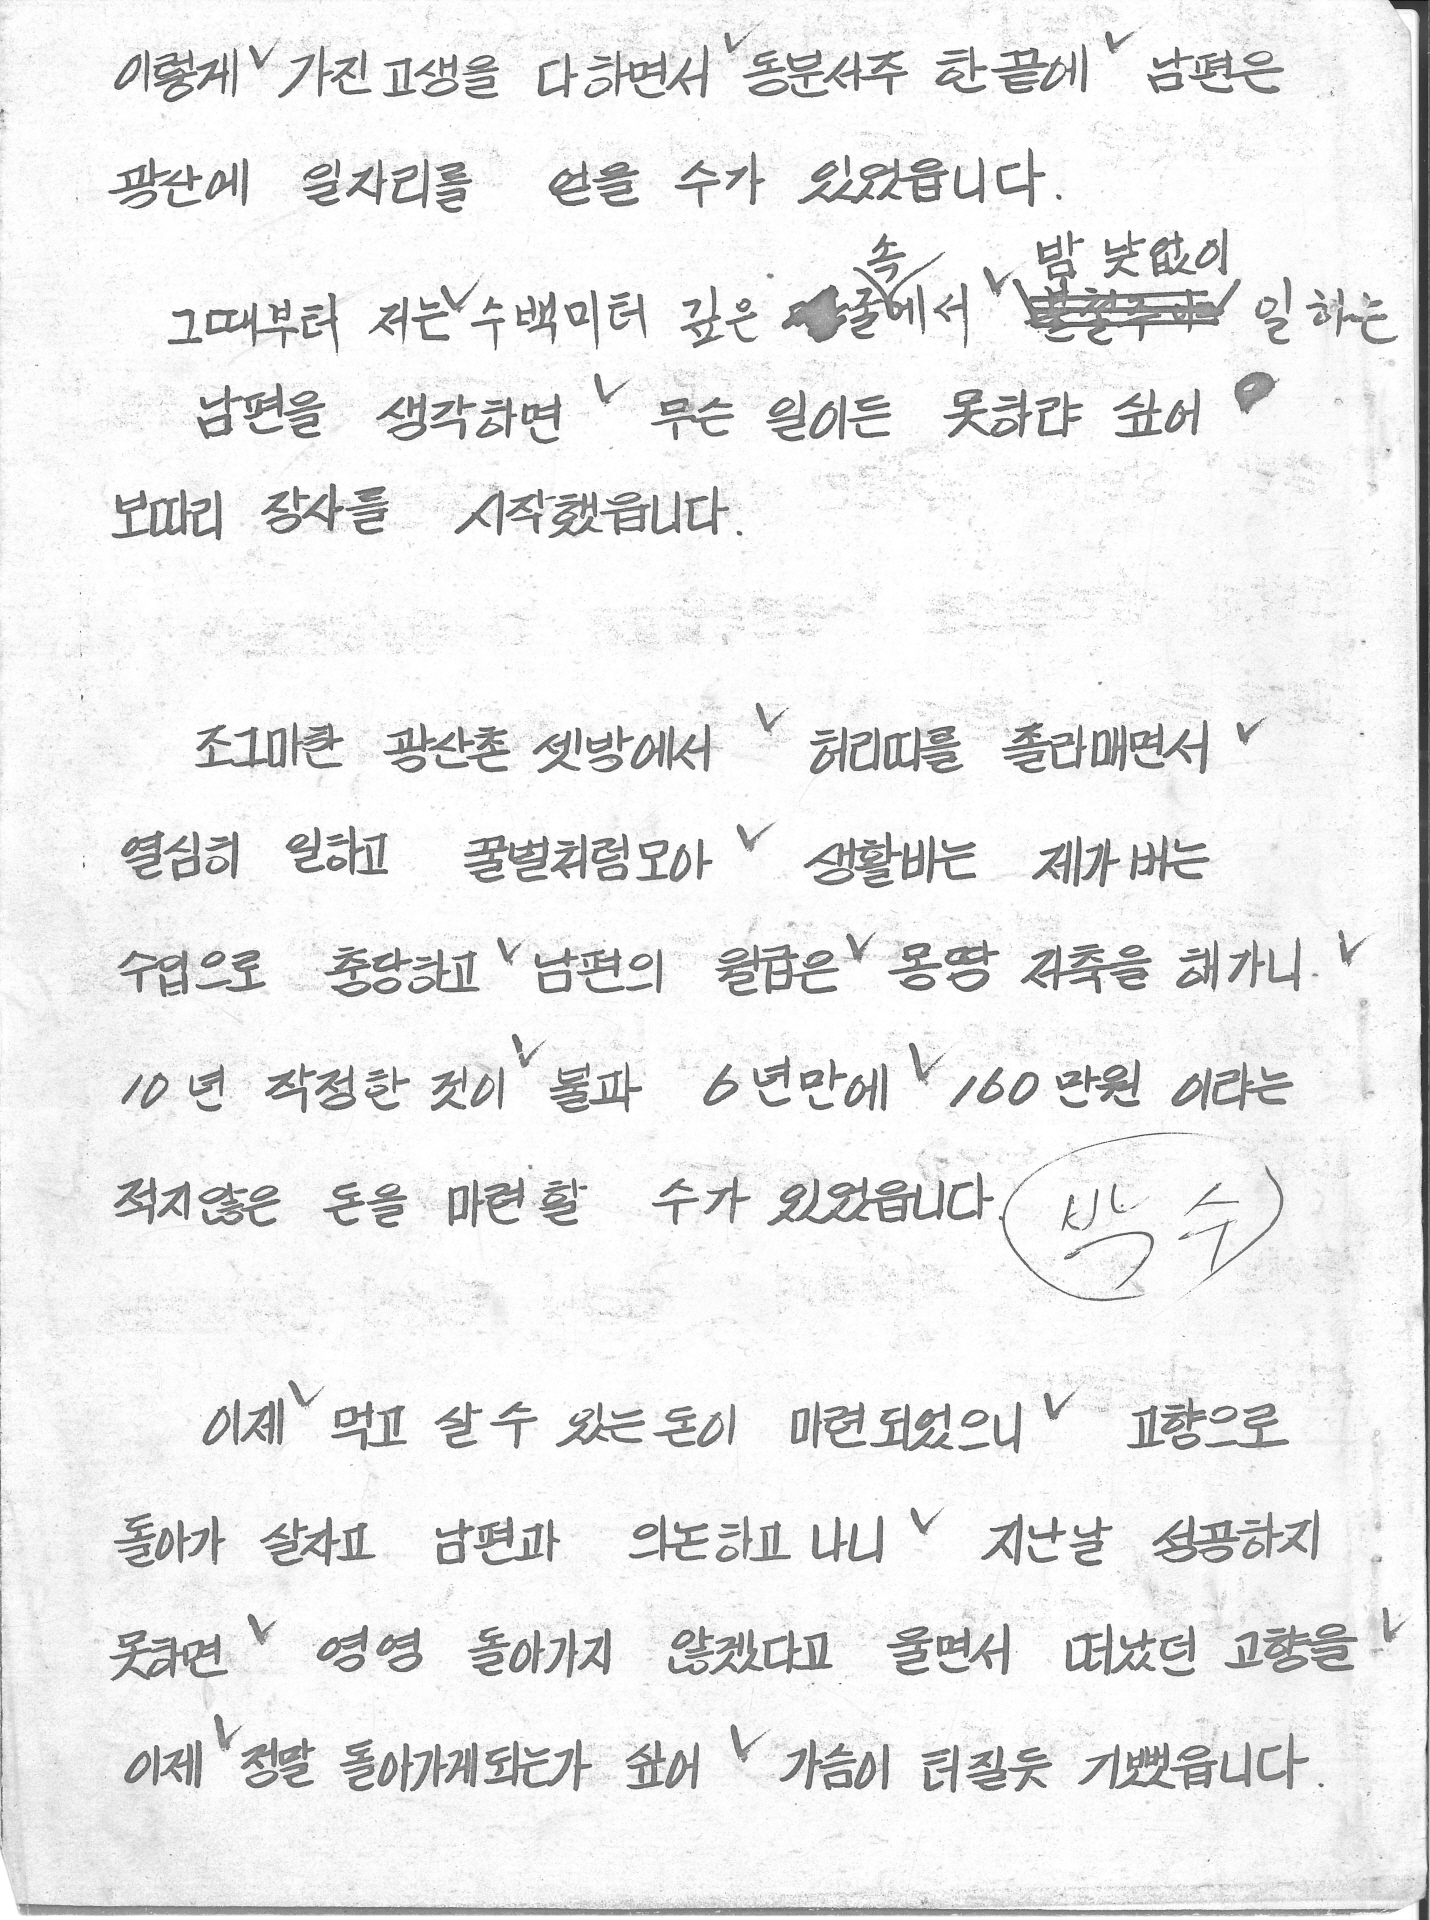 이렇게 가진 고생을 다 하면서 동분서주 한 끝에 남편은
광산에 일자리를 얻을 수가 있었읍니다.
속 밤 낮없이
그때부터 저는 수백미터 깊은 굴에서 일 하는
남편을 생각하면 무슨 일이든 못하랴 싶어
보따리 장사를 시작했읍니다.
조그마한 광산촌 셋방에서 허리띠를 졸라매면서
열심히 일하고 꿀벌처럼모아 생활비는 제가 버는
수입으로 충당하고 남편의 월급은 몽땅 저축을 해가니
10년 작정한 것이 불과 6년만에 160만원 이라는
적지않은 돈을 마련 할 수가 있었읍니다. 박수
이제 먹고 살 수 있는 돈이 마련되었으니 고향으로
돌아가 살자고 남편과 의논하고 나니 지난날 성공하지
못하면 영영 돌아가지 않겠다고 울면서 떠났던 고향을
이제 정말 돌아가게되는가 싶어 가슴이 터질듯 기뻤읍니다.